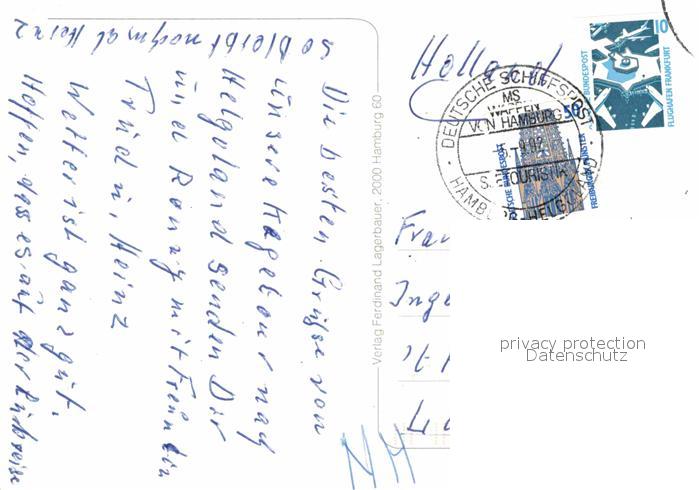 Die besten Grüße von
unserer Tagetour nach
Helgoland senden Dir
und Ronny mit Freundin
Trud u, Heinz
Wetter ist ganz gut.
Hoffen, dass es auf der Rückreise
so bleibt nochmal Heinz
Verlag Ferdinand Lagerbauer, 2000 Hamburg 60
Holland
DEUTSCHE SCHIFFSPOST
MS
WAPPEN
VON HAMBURG
9.92
SEETOURISTIK
HAMBURG-HELGOLAND
10
DEUTSCHE BUNDESPOST
FLUGHAFEN FRANKFURT
50
DEUTSCHE BUNDESPOST
FREIBURGER MÜNSTER
Frau
Inge
NH
privacy protection
Datenschutz